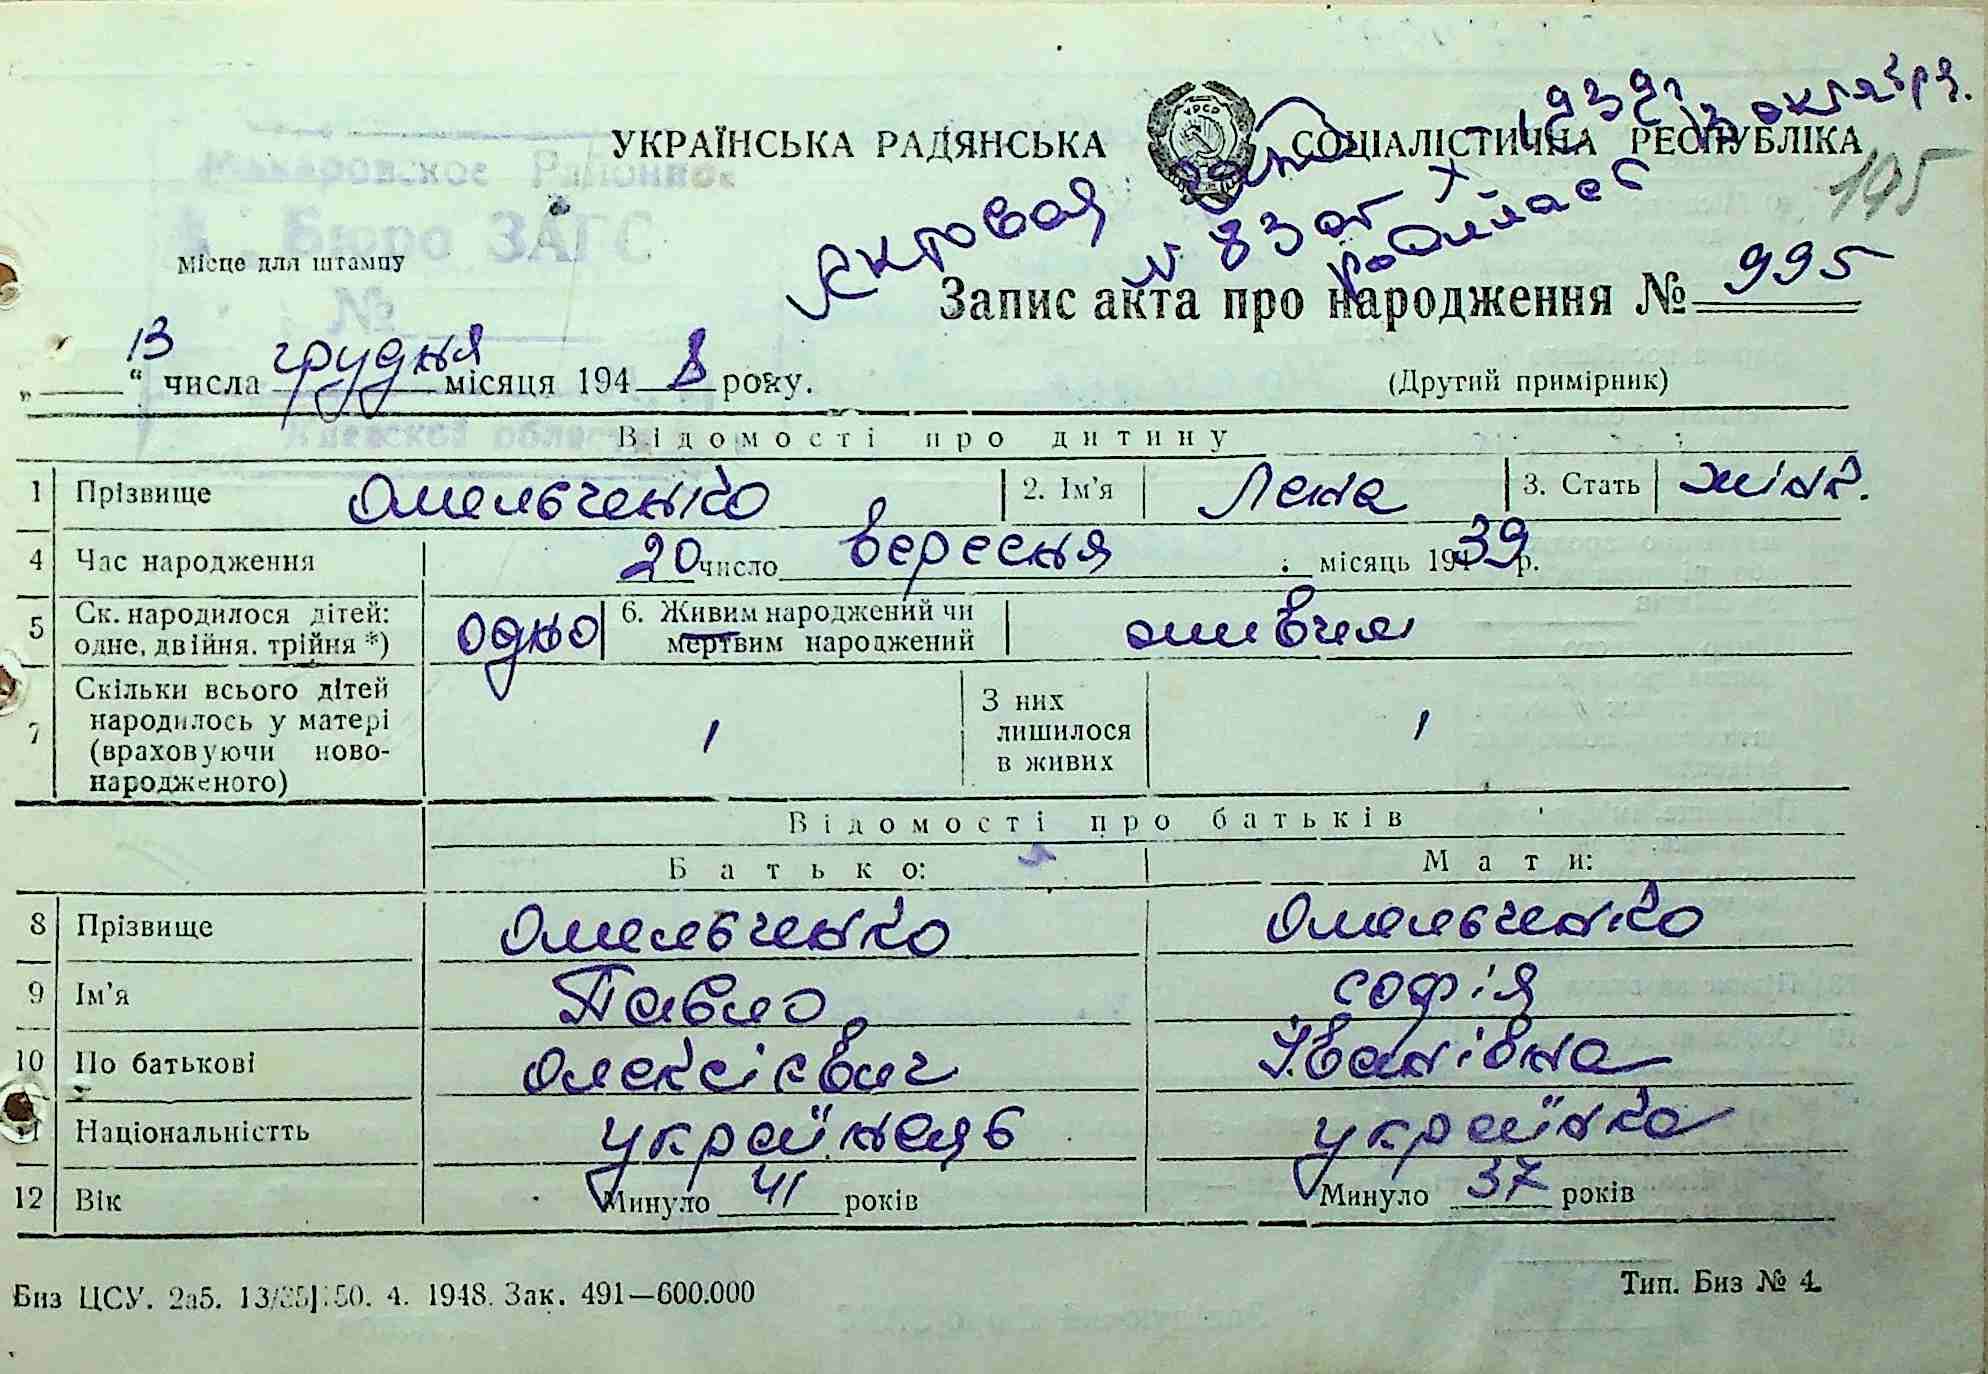 УКРАЇНСЬКА РАДЯНСЬКА СОЦІАЛІСТИЧНА РЕСПУБЛІКА
УРСР
1939 13 октября.
Актовая
N 83 от
195
Макаровское Районное
Бюро ЗАГС
№
Киевской области
Місце для штампу
Запис акта про народження № 995
„ 13 “ числа грудня місяця 194 8 року.
(Другий примірник)
Відомості про дитину
1 Прізвище Омельченко 2. Ім’я Лена 3. Стать жінк.
4 Час народження 20 число вересня місяць 1939 р.
5 Ск. народилося дітей: одне, двійня, трійня *) одно 6. Живим народжений чи мертвим народжений живим
7 Скільки всього дітей народилось у матері (враховуючи новонародженого) 1 З них лишилося в живих 1
Відомості про батьків
Батько: Мати:
8 Прізвище Омельченко Омельченко
9 Ім’я Павло Софія
10 По батькові Олексієвич Іванівна
11 Національністть українець українка
12 Вік Минуло 41 років Минуло 37 років
Биз ЦСУ. 2а5. 13/ 50. 4. 1948. Зак. 491—600.000
Тип. Биз № 4.